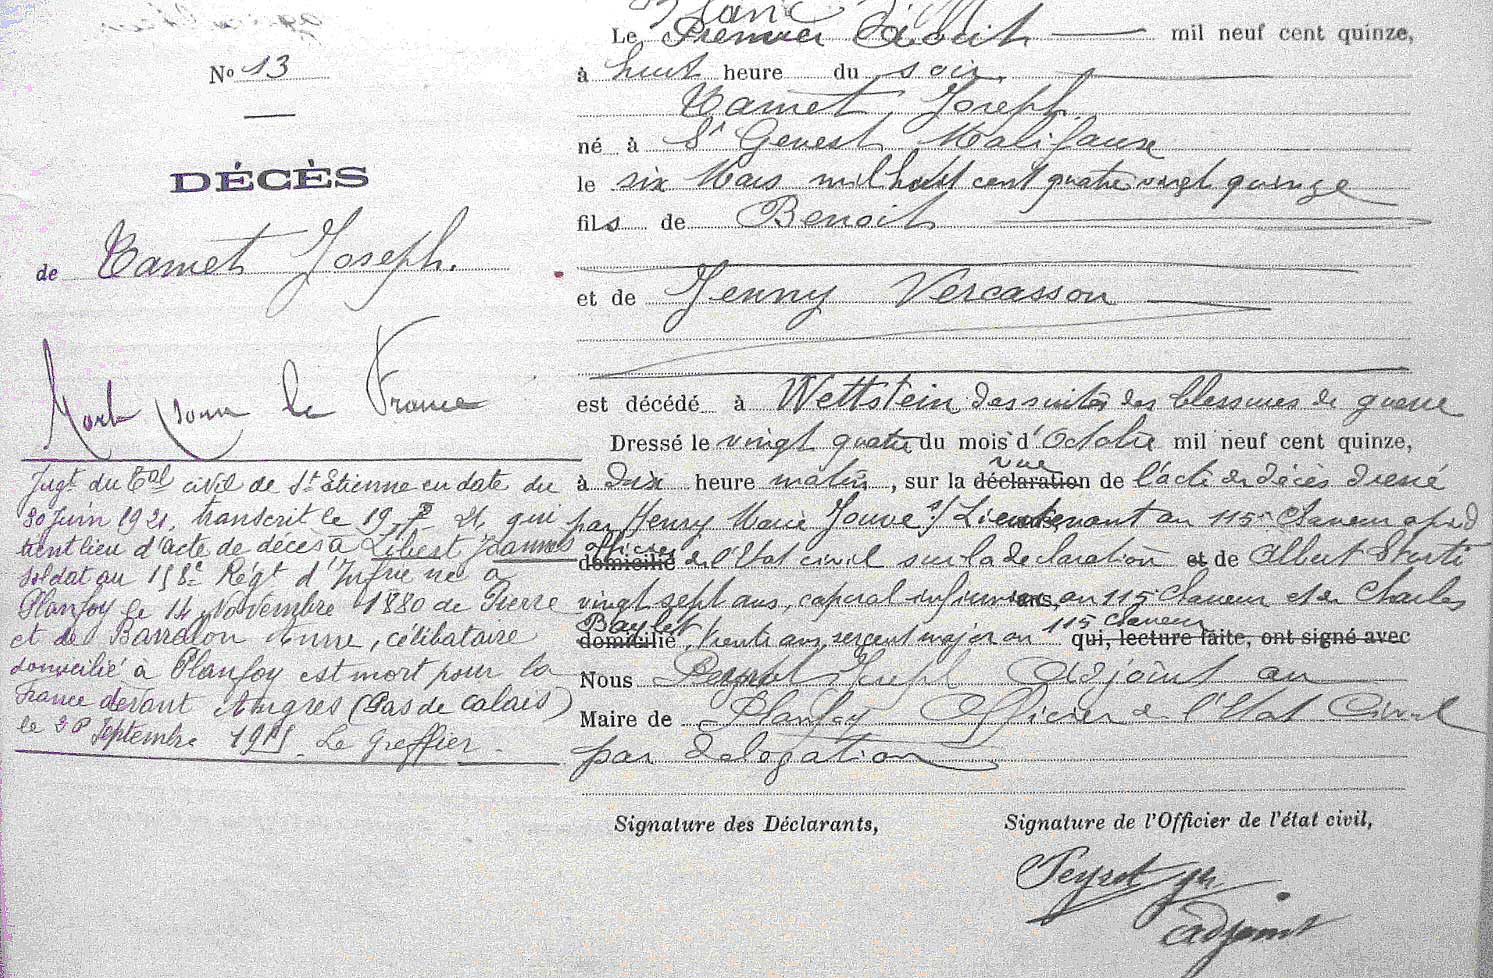 Nº 13
DÉCÈS
de Tamet Joseph.
Mort pour la France
Jugt du Tbal civil de St Etienne en date du
30 Juin 1921, transcrit le 19-7-21, qui
tient lieu d'acte de décès à Libest
soldat au 158e Régt d'Infrie né à
Planfoy le 14 Novembre 1880 de Pierre
et de Barralon Anne, célibataire
domicilié à Planfoy est mort pour la
France devant Angres (Pas de Calais)
le 28 Septembre 1915. Le Greffier.
Le Premier Août mil neuf cent quinze,
à huit heure du soir,
Tamet Joseph
né à St Genest Malifaux
le six Mars mil huit cent quatre vingt quinze
fils de Benoit
et de Jenny Vercasson
est décédé à Wettstein des suites des blessures de guerre
Dressé le vingt quatre du mois d'Octobre mil neuf cent quinze,
à dix heure matin, sur la déclaration vue de l'acte de décès dressé
par Henry Marie Jouve s/Lieutenant au 115e Chasseur à pied
domicilié officier de l'Etat civil sur la déclaration et de Albert
vingt sept ans, caporal infirmier ans, au 115e Chasseur et de Charles
domicilié Baylet, trente ans, sergent major au 115 Chasseur qui, lecture faite, ont signé avec
Nous Peyret Adjoint au
Maire de Planfoy Officier de l'Etat Civil
par délégation
Signature des Déclarants,
Signature de l'Officier de l'état civil,
Peyret
adjoint